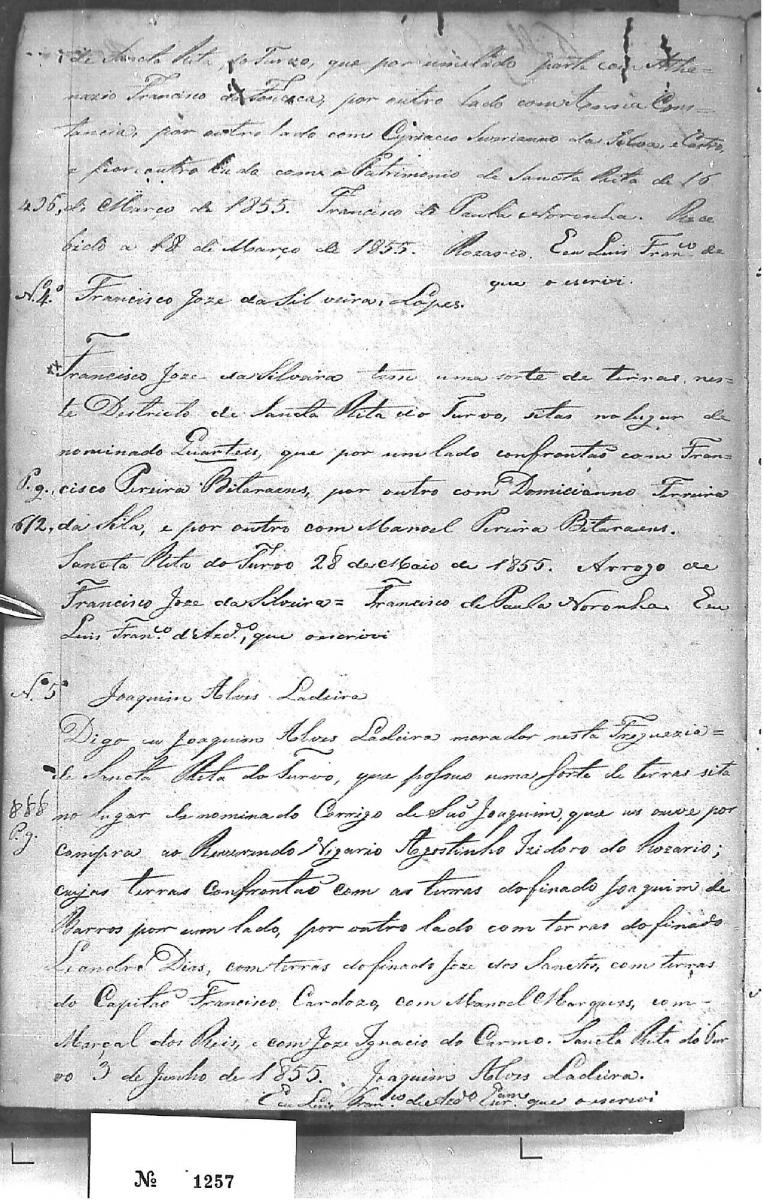 de Sancta Rita do Turvo, que por um lado parte com Atha-
nazio Francisco da Fonceca, por outro lado com Antonia Cons-
tancia, por outro lado com Cyriaco Suverianno da Silva e Castro,
e por outro lado com o Patrimonio de Sancta Rita de 16
de Março de 1855. Francisco de Paula Noronha. Rece
bido a 18 de Março de 1855. Rozario. Eu Luis Fran.co de
que o escrivi.
N.º 4.º Francisco Joze da Silveira Lopes.
Francisco Joze da Silveira tem uma sorte de terras nes-
te Districto de Sancta Rita do Turvo, sitas no lugar de
nominado Quarteis, que por um lado confrontaõ com Fran-
P.g. cisco Pereira Bitaraens, por outro com Domicianno Ferreira
612, da Sila, e por outro com Manoel Pereira Bitaraens.
Sancta Rita do Turvo 28 de Maio de 1855. Arrogo de
Francisco Joze da Silveira = Francisco de Paula Noronha. Eu
Luis Fran.co d'Azd.º, que o escrivi
N.º 5º Joaquim Alves Ladeira
Digo eu Joaquim Alves Ladeira morador nesta Freguezia=
de Sancta Rita do Turvo, que possuo uma sorte de terras sita
no lugar denominado Corrigo de Saõ Joaquim, que as ouve por
888
P.g.
compra ao Reverendo Vigario Agostinho Izidoro do Rozario;
cujas terras confrontaõ com as terras do finado Joaquim de
Barros por um lado, por outro lado com terras do finado
Leandro Dias, com terras do finado Joze dos Sanctos, com terras
do Capitaõ Francisco Cardozo, com Manoel Marques, com
Marçal dos Reis, e com Joze Ignacio do Carmo. Sancta Rita do Tur
vo 3 de Junho de 1855. Joaquim Alves Ladeira.
Eu Luis Fran.co de Azd.º que o escrivi
Nº 1257